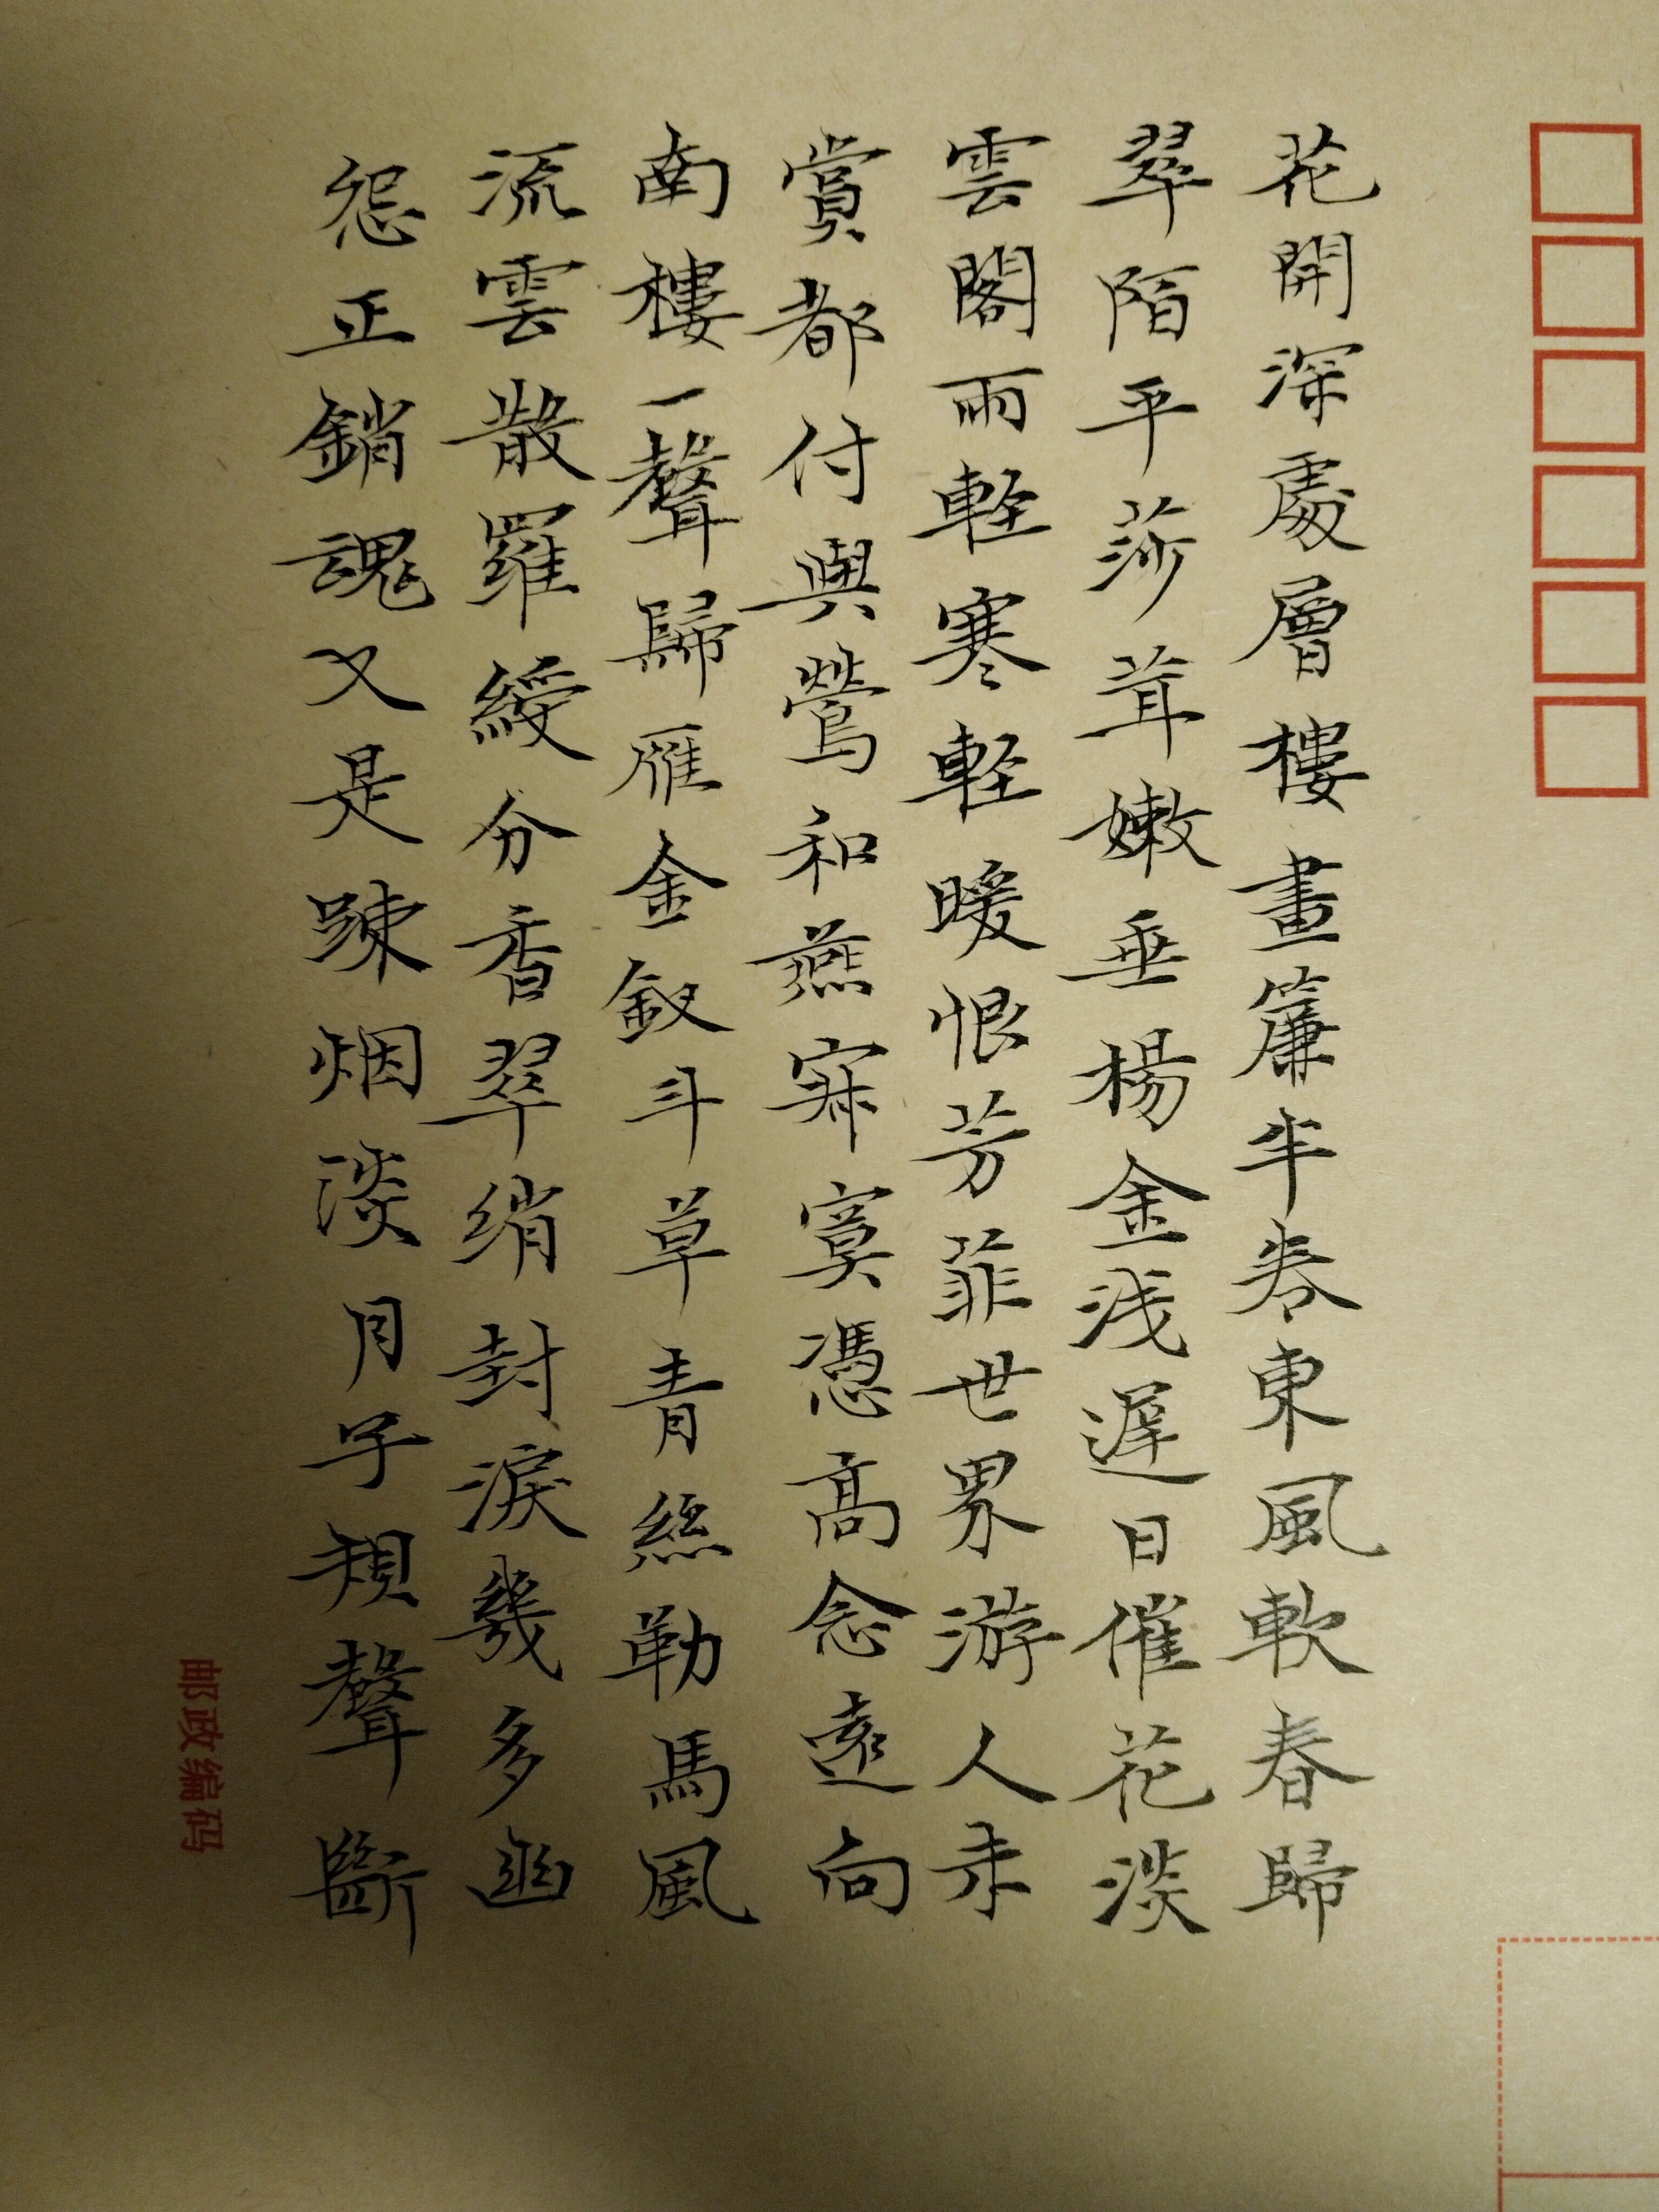 花開深處層樓畫簾半卷東風軟春歸
翠陌平莎茸嫩垂楊金浅遲日催花淡
雲閣雨軽寒軽暖恨芳菲世界游人未
賞都付與鶯和燕寂寞憑高念遠向
南樓一聲歸雁金釵斗草青絲勒馬風
流雲散羅綬分香翠绡封淚幾多幽
怨正銷魂又是踈烟淡月子規聲斷
邮政编码